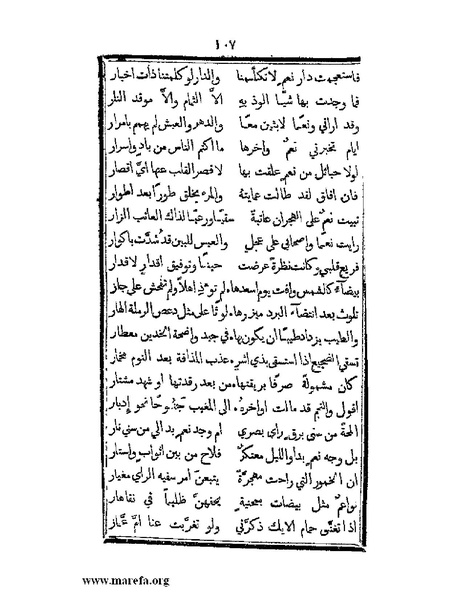 ١٠٧
فاستعجمت دار نعم لا تكلمنا والدار لو كلمتنا ذات اخبار
فما وجدت بها شيئا الوذ به الا الثمام والا موقد النار
وقد اراني ونعما لابثين معا والدهر والعيش لم يهمم بامرار
ايام تخبرني نعم واخبرها ما اكتم الناس من باد واسرار
لولا حبائل من نعم علقت بها لاقصر القلب عنها اي اقصار
فان افاق لقد طالت عمايته والمرء يخلق طورا بعد اطوار
نبيت نعم على الهجران عاتبة سقيا ورعيا لذاك العاتب الزار
رايت نعما واصحابي على عجل والعيس للبين قد شدت باكوار
فريع قلبي وكانت نظرة عرضت حينا وتوفيق اقدار لاقدار
بيضآء كالشمس وافت يوم اسعدها لم توذ اهلا ولم تفحش على جار
تلوث بعد افتضآء البرد ميزرها لوثا على مثل دعص الرملة الهار
والطيب يزداد طيبا ان يكون بها في جيد واضحة الخدين معطار
تسقي الضجيع اذا استسقى بذي اشر عذب المذاقة بعد النوم مخمار
كان مشمولة صرفا بريقتها من بعد رقدتها او شهد مشتار
اقول والنجم قد مالت اواخره الى المغيب جنوحا نحو ادبار
المحة من سنى برق راي بصري ام وجه نعم بدالي من سني نار
بل وجه نعم بدا والليل معتكر فلاح من بين اثواب واستار
ان الخمور التي راحت مهجرة يتبعن امر سفيه الراي مغيار
نواعم مثل بيضات بمحنية يحفهن ظليما في نقا هار
اذا تغنى حمام الايك ذكرني ولو تغربت عنا ام عمار
www.marefa.org